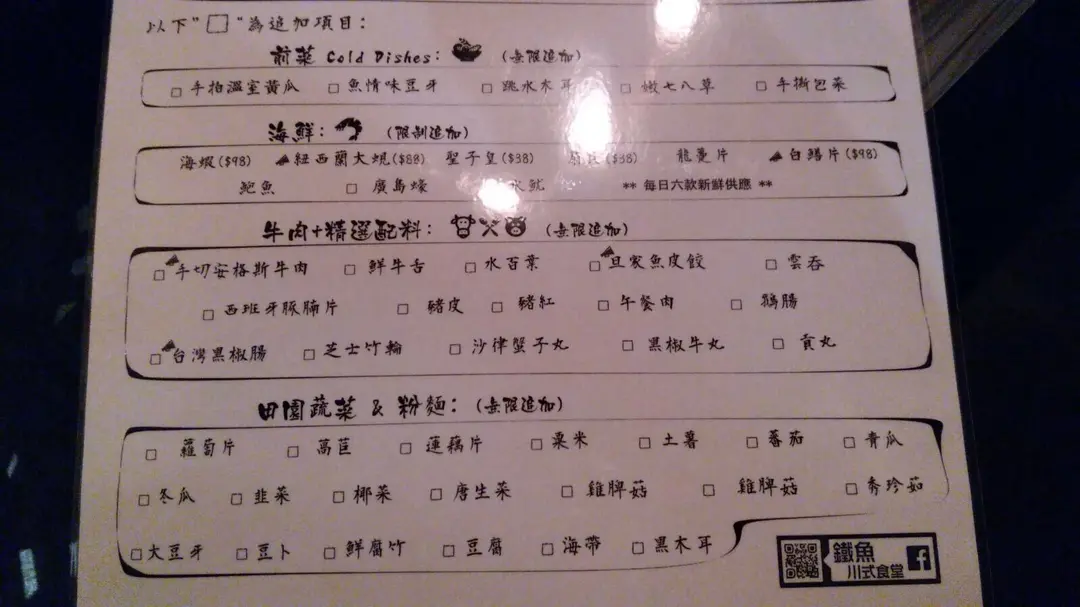 以下"□"為追加項目：
前菜 Cold Dishes: (無限追加)
□ 手拍溫室黃瓜 □ 魚情味豆牙 □ 跳水木耳 □ 嫩七八草 □ 手撕包菜
海鮮: (限制追加)
海蝦($98) 紐西蘭大蜆($88) 聖子皇($38) ($38) 龍躉片 白鱔片($98)
鮑魚 □ 廣島蠔 水魷 ** 每日六款新鮮供應 **
牛肉+精選配料: (無限追加)
□ 手切安格斯牛肉 □ 鮮牛舌 □ 水百葉 □ 旦家魚皮餃 □ 雲吞
□ 西班牙豚腩片 □ 豬皮 □ 豬紅 □ 午餐肉 □ 鵝腸
□ 台灣黑椒腸 □ 芝士竹輪 □ 沙律蟹子丸 □ 黑椒牛丸 □ 貢丸
田園蔬菜 & 粉麵: (無限追加)
□ 蘿蔔片 □ 萵苣 □ 蓮藕片 □ 粟米 □ 土薯 □ 蕃茄 □ 青瓜
□ 冬瓜 □ 韭菜 □ 椰菜 □ 唐生菜 □ 雞脾菇 □ 雞脾菇 □ 秀珍茹
□ 大豆牙 □ 豆卜 □ 鮮腐竹 □ 豆腐 □ 海帶 □ 黑木耳
鐵魚
川式食堂